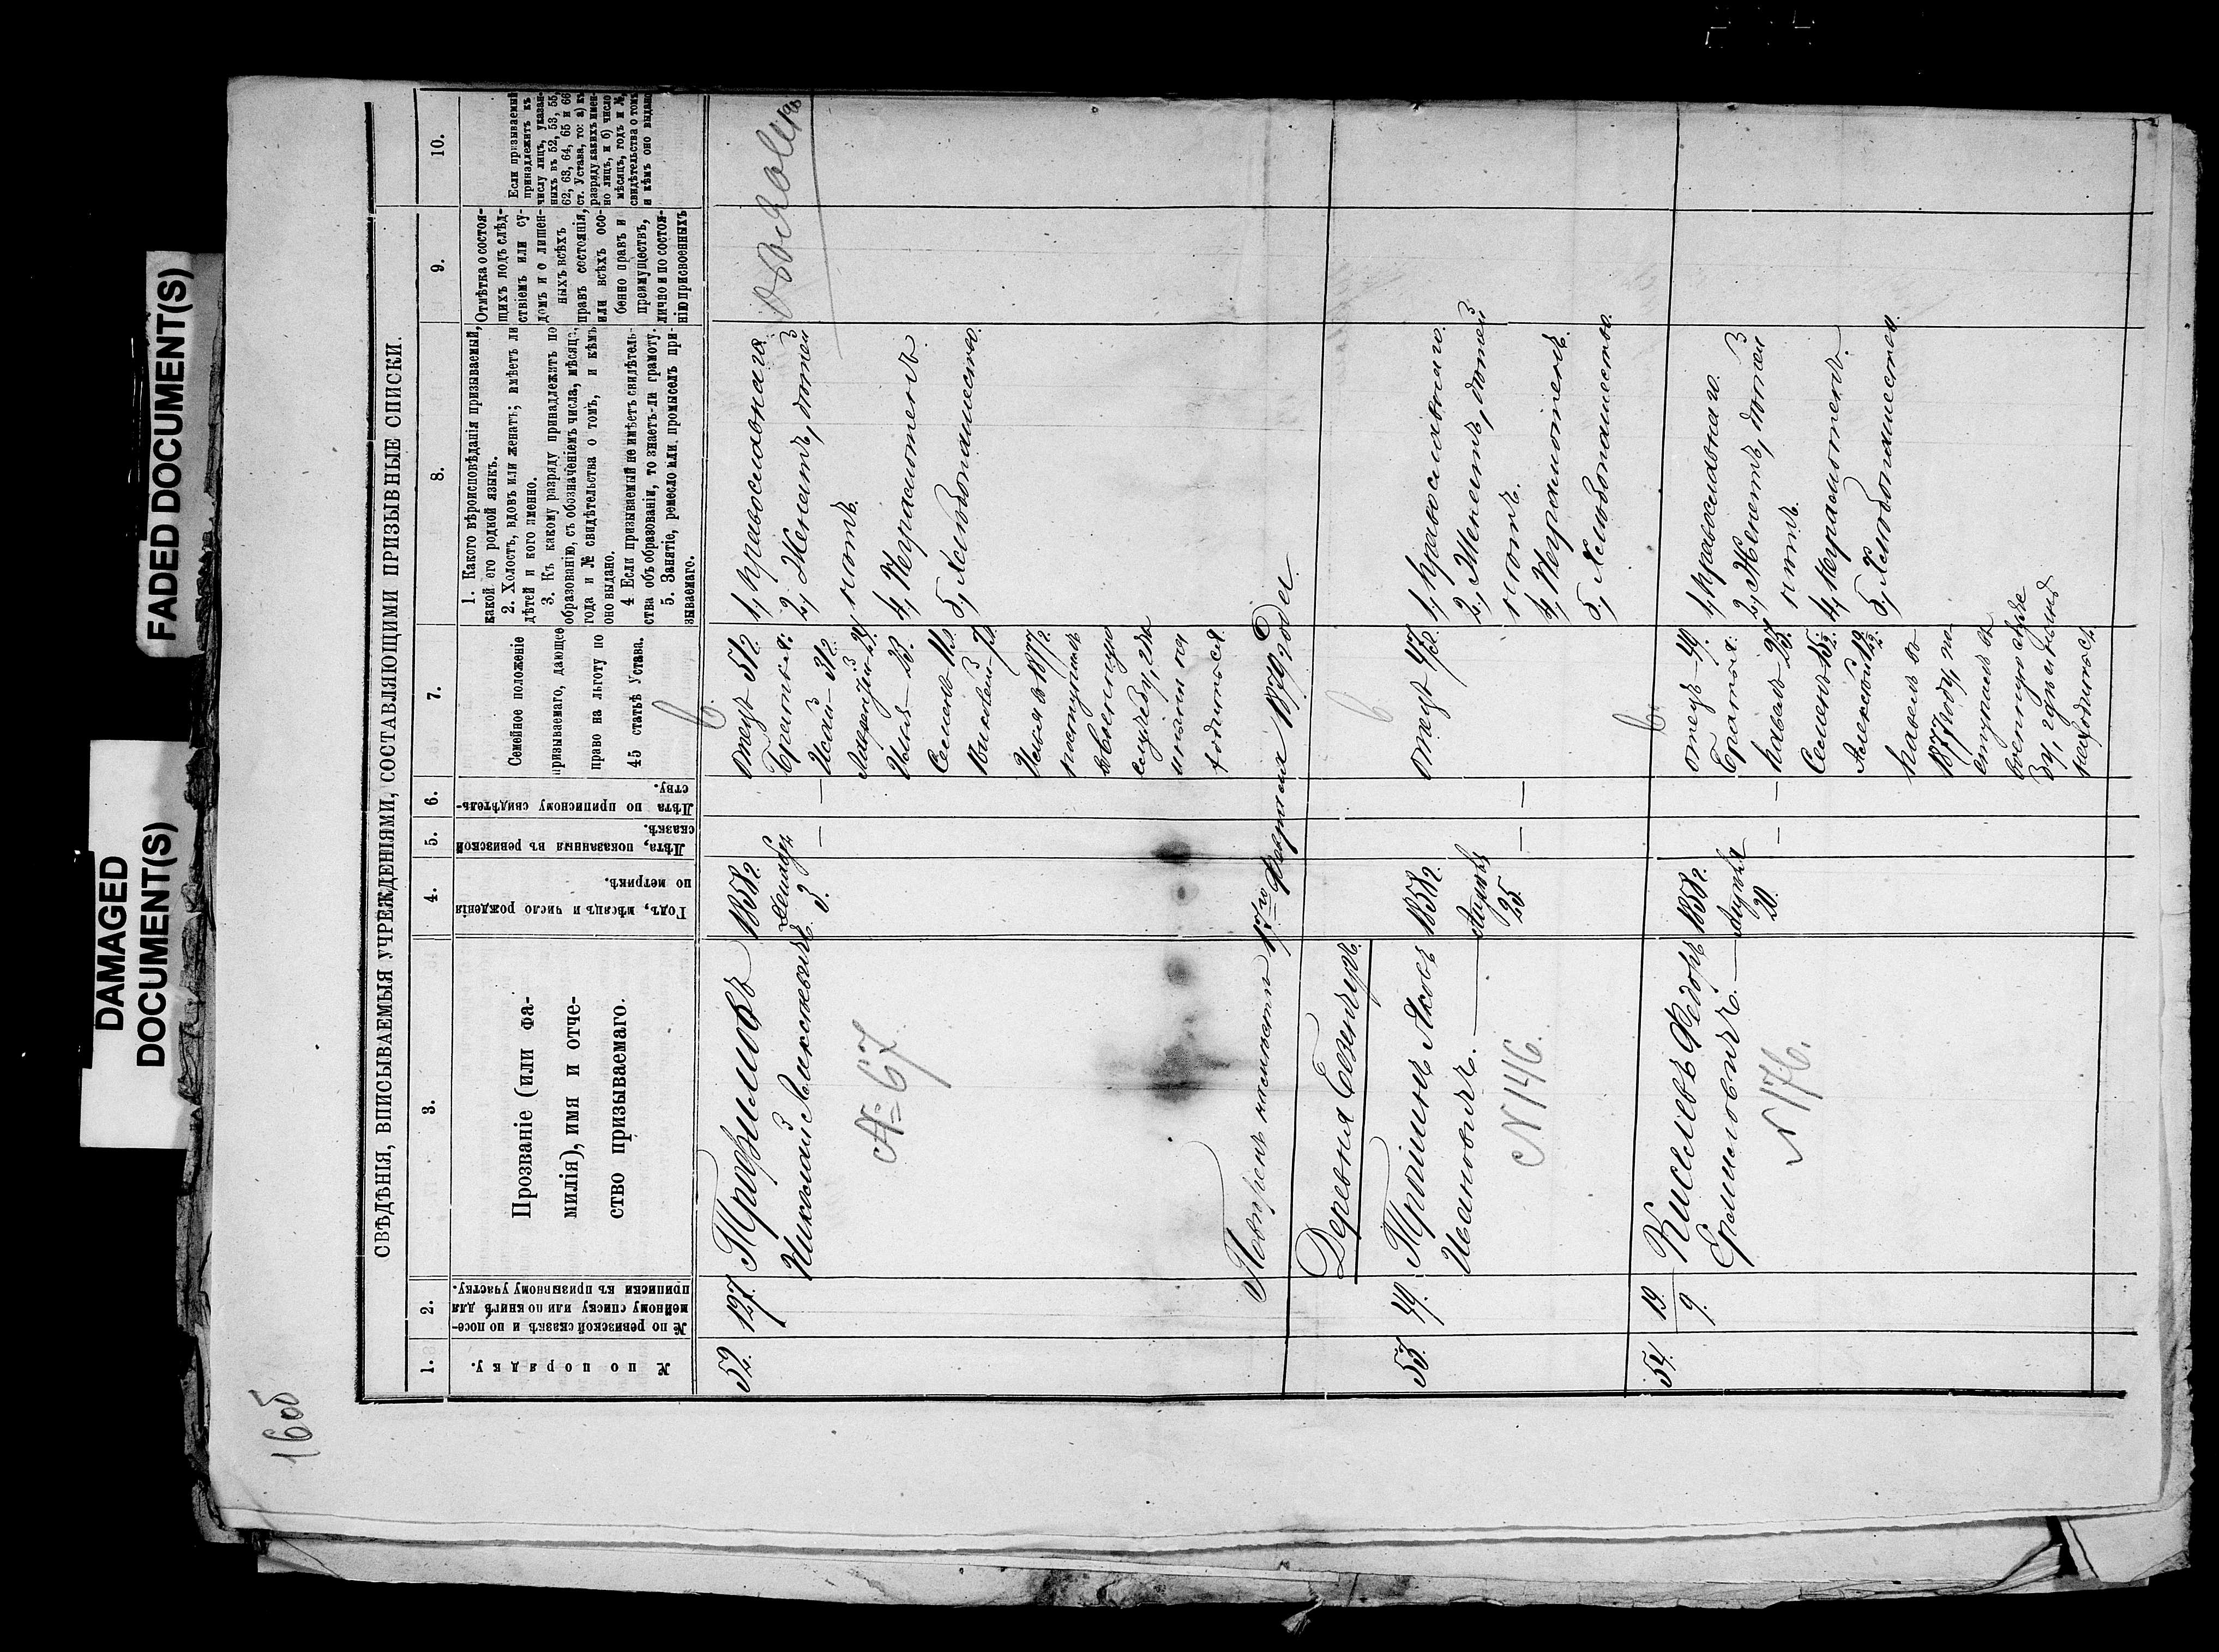 DAMAGED
DOCUMENT(S)
FADED DOCUMENT(S)
16об
СВѢДѢНІЯ, ВПИСЫВАЕМЫЯ УЧРЕЖДЕНІЯМИ, СОСТАВЛЯЮЩИМИ ПРИЗЫВНЫЕ СПИСКИ.
1.
2.
3.
4.
5.
6.
7.
8.
9.
10.
№ по порядку.
№ по ревизской сказкѣ и по посе-
мейному списку или по книгѣ для
приписки къ призывному участку.
Прозваніе (или фа-
милія), имя и отче-
ство призываемаго.
Годъ, мѣсяцъ и число рожденія
по метрикѣ.
Лѣта, показанныя въ ревизской
сказкѣ.
Лѣта по приписному свидѣтель-
ству.
Семейное положеніе
призываемаго, дающее
право на льготу по
45 статьѣ Устава.
1. Какого вѣроисповѣданія призываемый,
какой его родной языкъ.
2. Холостъ, вдовъ или женатъ; имѣетъ ли
дѣтей и кого именно.
3. Къ какому разряду принадлежитъ по
образованію, съ обозначеніемъ числа, мѣсяца,
года и № свидѣтельства о томъ, и кѣмъ
оно выдано.
4 Если призываемый не имѣетъ свидѣтель-
ства объ образованіи, то знаетъ-ли грамоту.
5. Занятіе, ремесло или промыселъ при-
зываемаго.
Отмѣтка о состоя-
щихъ подъ слѣд-
ствіемъ или су-
домъ и о лишен-
ныхъ всѣхъ
правъ состоянія,
или всѣхъ осо-
бенно правъ и
преимуществъ,
лично и по состоя-
нію присвоенныхъ
Если призываемый
принадлежитъ къ
числу лицъ, указан-
ныхъ въ 52, 53, 55,
62, 63, 64, 65 и 66
ст. Устава, то: а) къ
разряду какихъ имен-
но лицъ, и б) число
мѣсяцъ, годъ и №
свидѣтельства о томъ
и кѣмъ оно выдано
52.
127.
Трофимовъ
Николай Алексѣевичъ.
№ 67
1858 г.
3.
—
—
отецъ 51 г.
Братья:
Исай — 31 г.
Илья — 23.
Семенъ 11 г.
въ 1877 г.
поступилъ
въ военную
службу, гдѣ
и нахо
дится.
1, Православнаго.
2, Женатъ, дѣтей
нѣтъ.
4, Неграмотенъ.
5, Хлебопашество.
17го Февраля 1879 года.
Деревня Безенчукъ.
53.
49.
Трошинъ Яковъ
Ивановичъ.
N 146.
1858 г.
25.
—
—
отецъ 47 г.
1, Православнаго.
2, Женатъ, дѣтей
нѣтъ.
4, Неграмотенъ.
5, Хлебопашество.
54.
19.
9.
Киселевъ Федоръ
Ермиловичъ.
N 176.
1858 г.
20.
—
отецъ 49.
Братья:
Павелъ 27
Семенъ 15 г.
Алексѣй 12 г.
Павелъ въ
1877 году по-
ступилъ въ
военную служ
бу, гдѣ и нынѣ
находится.
1, Православнаго.
2, Женатъ, дѣтей
нѣтъ.
4, Неграмотенъ.
5, Хлебопашество.